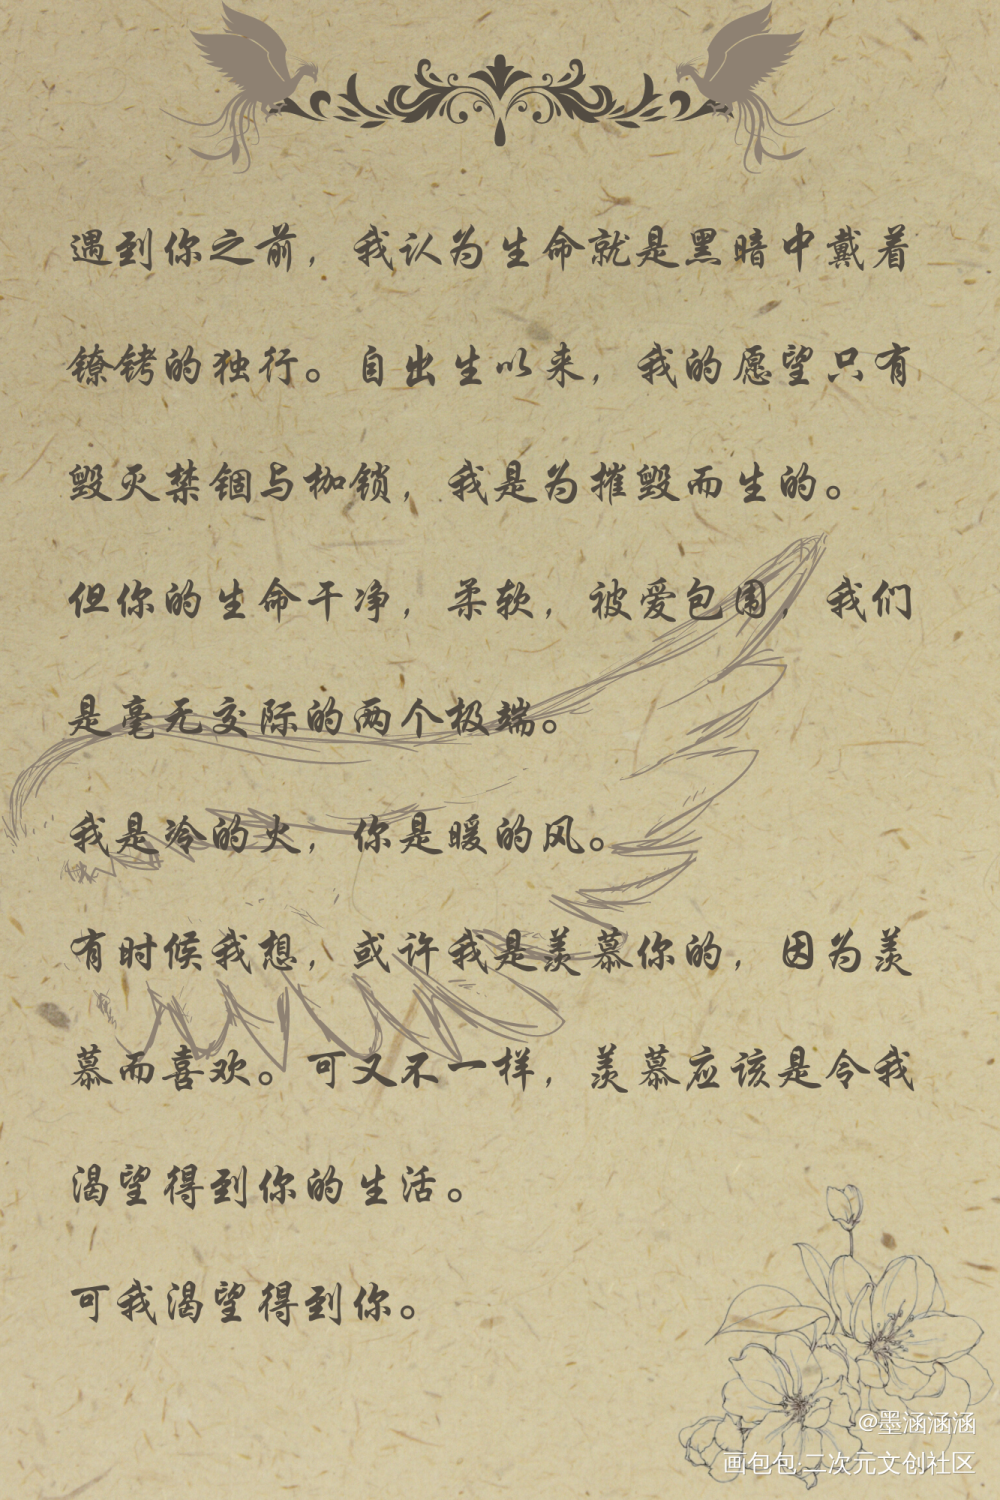 遇到你之前，我认为生命就是黑暗中戴着
镣铐的独行。自出生以来，我的愿望只有
毁灭禁锢与枷锁，我是为摧毁而生的。
但你的生命干净，柔软，被爱包围，我们
是毫无交际的两个极端。
我是冷的火，你是暖的风。
有时候我想，或许我是羡慕你的，因为羡
慕而喜欢。可又不一样，羡慕应该是令我
渴望得到你的生活。
可我渴望得到你。
@墨涵涵涵
画包包·二次元文创社区